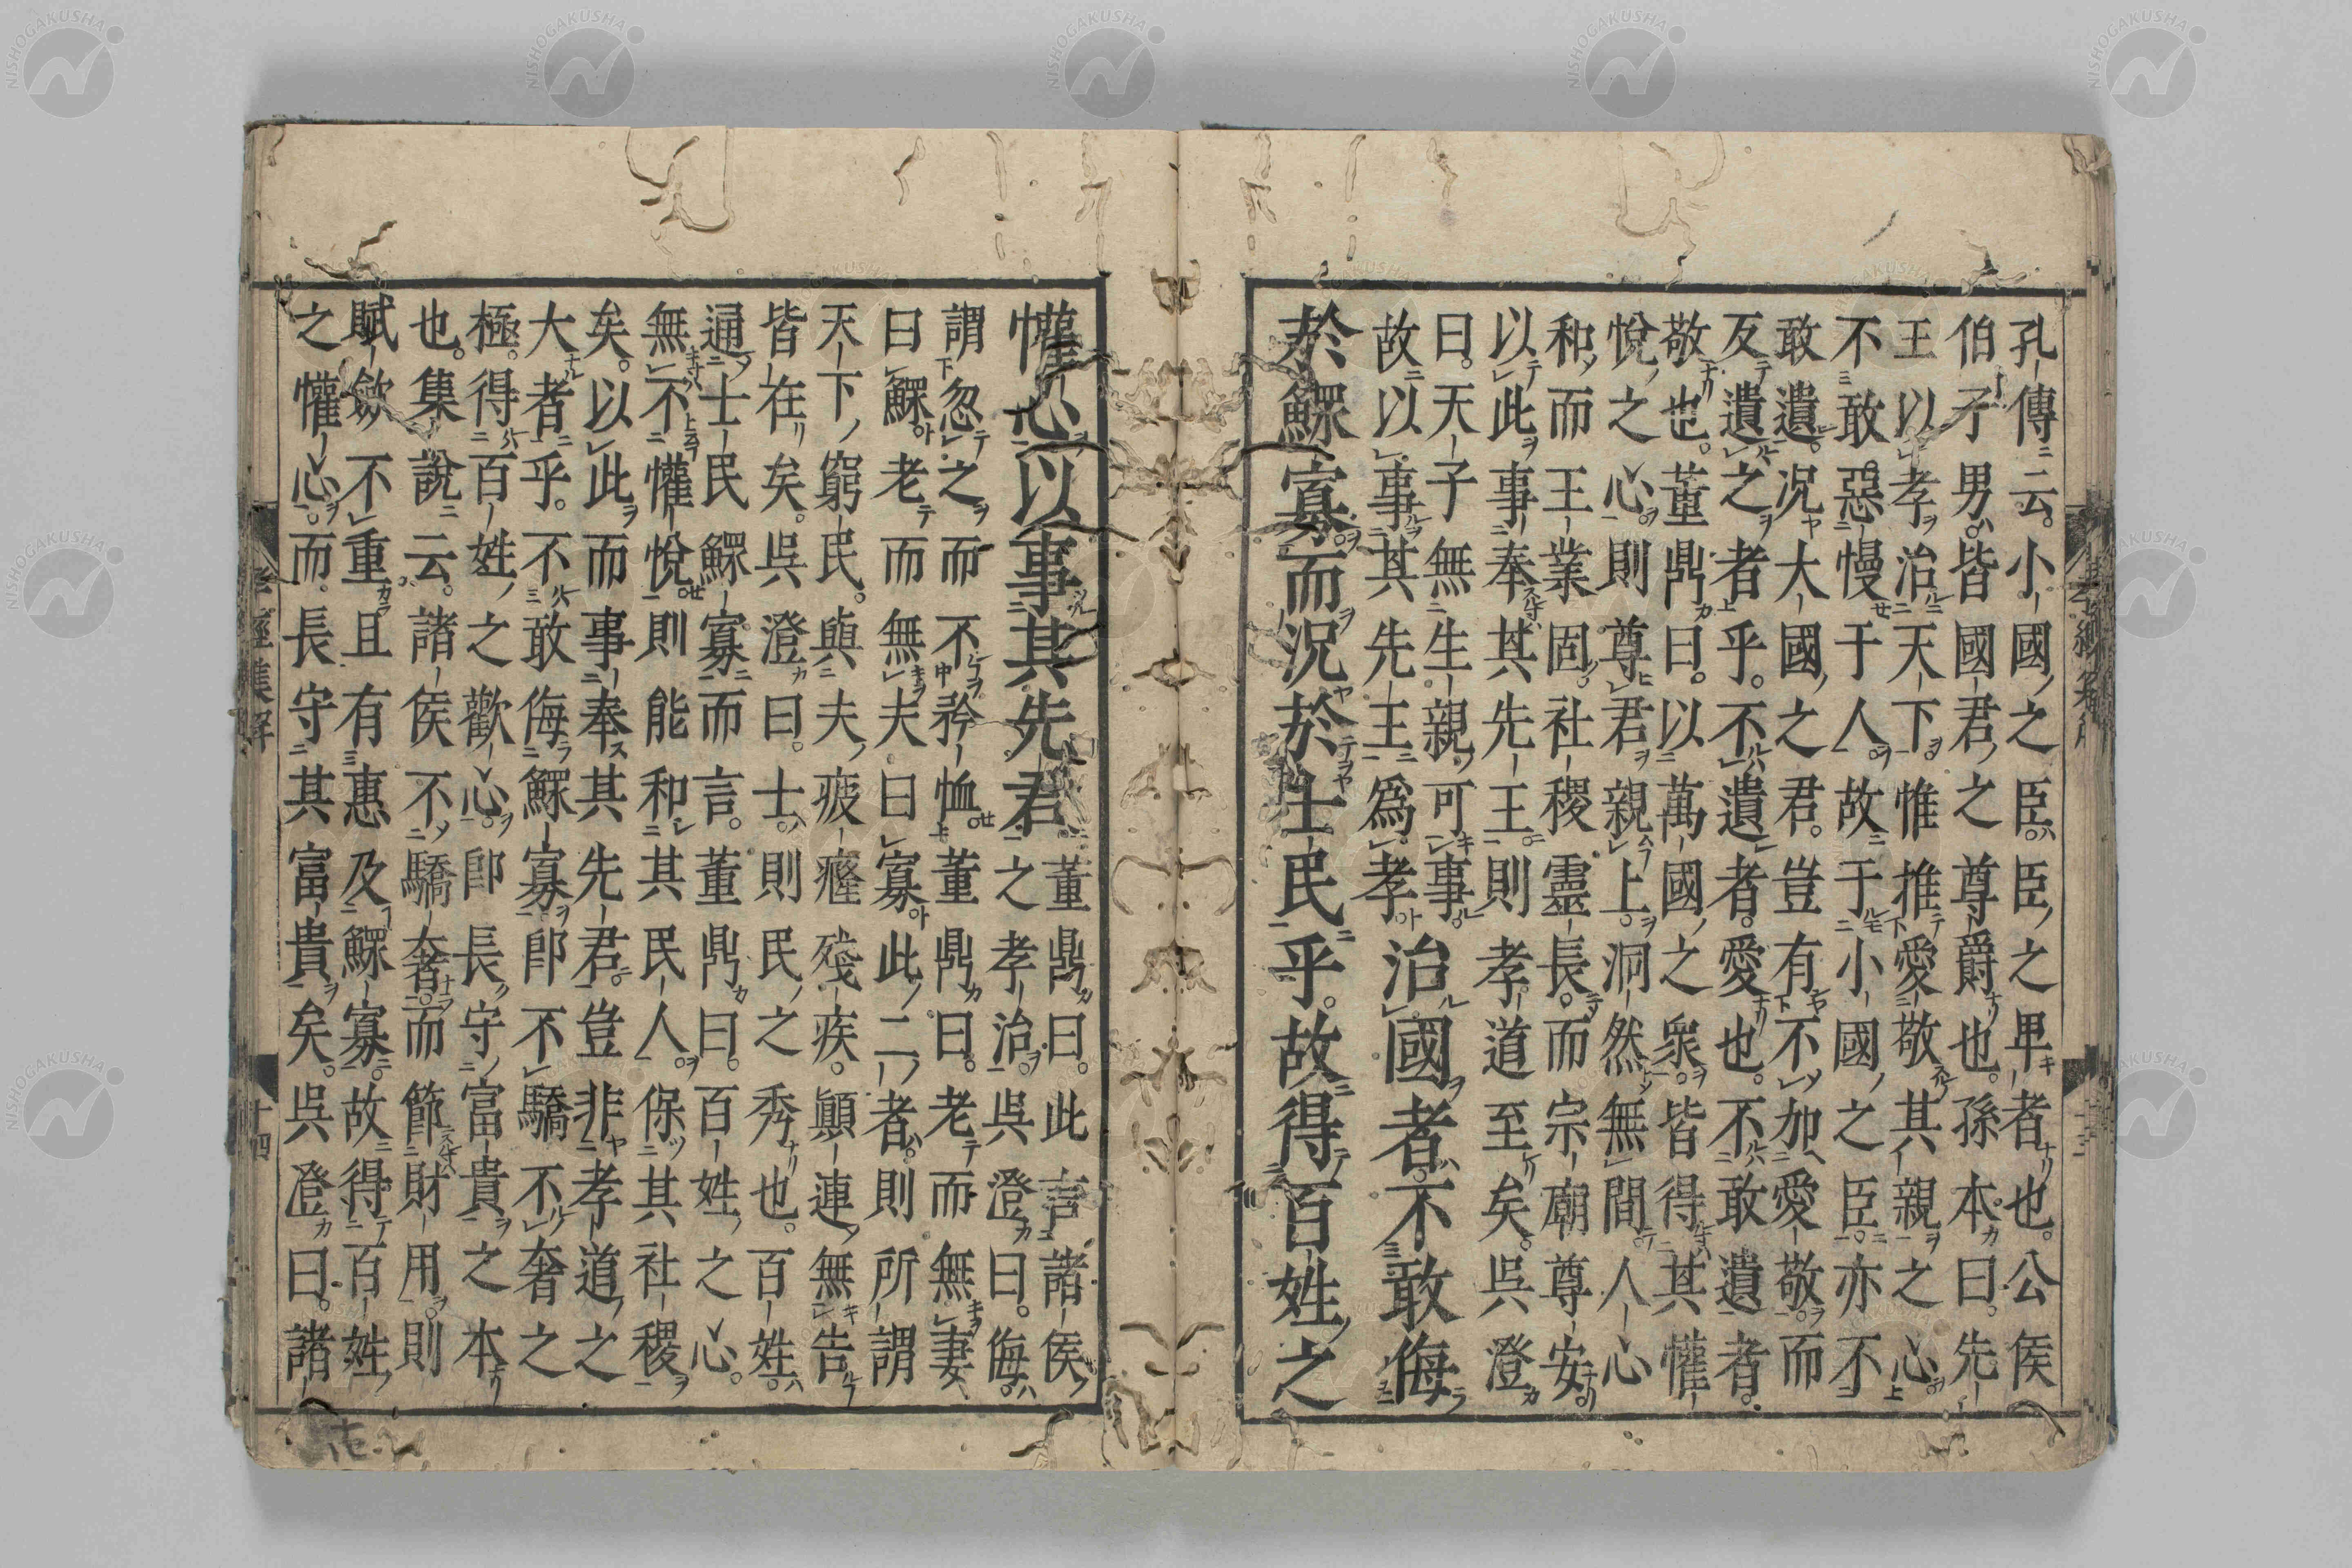 孔傳云。小國之臣。臣之卑者也。公侯
伯子男。皆國君之尊爵也。孫本曰。先
王以孝治天下。惟推愛敬其親之心
不敢惡慢于人。故于小國之臣。亦不
敢遺。况大國之君。豈有不加愛敬。而
反遺之者乎。不遺者。愛也。不敢遺者。
敬也。董鼎曰。以萬國之衆。皆得其懽
悅之心。則尊君親上。洞然無間。人心
和而王業固。社稷靈長。而宗廟尊安。
以此事奉其先王。則孝道至矣。吳澄
曰。天子無生親可事。
故以事其先王爲孝
治國者。不敢侮
於鰥寡。而况於士民乎。故得百姓之
懽心。以事其先君。
董鼎曰。此言諸侯
之孝治。吳澄曰。侮。
謂忽之而不矜恤。董鼎曰。老而無妻
曰鰥。老而無夫曰寡。此二者。則所謂
天下窮民。與夫疲癃殘疾。顚連無告
皆在矣。吳澄曰。士。則民之秀也。百姓。
通士民鰥寡而言。董鼎曰。百姓之心。
無不懽悅。則能和其民人。保其社稷
矣。以此而事奉其先君。豈非孝道之
大者乎。不敢侮鰥寡。卽不驕不奢之
極。得百姓之歡心。卽長守富貴之本
也。集說云。諸侯不驕奢。而節財用。則
賦斂不重。且有惠及鰥寡。故得百姓
之懽心。而長守其富貴矣。吳澄曰。諸
孝經集解 十四